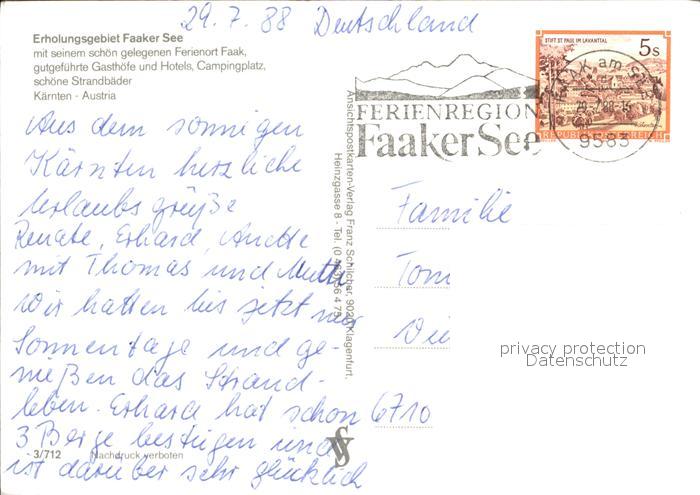 29.7.88 Deutschland
Erholungsgebiet Faaker See
mit seinem schön gelegenen Ferienort Faak,
gutgeführte Gasthöfe und Hotels, Campingplatz,
schöne Strandbäder
Kärnten - Austria
Aus dem sonnigen
Kärnten herzliche
Urlaubsgrüße
Renate, Erhard, Anette
mit Thomas und Mutti
Wir hatten bis jetzt nur
Sonnentage und ge-
nießen das Strand-
leben. Erhard hat schon
3 Berge bestiegen und
ist darüber sehr glücklich
3/712 Nachdruck verboten
Ansichtspostkarten-Verlag Franz Schilcher, 9020 Klagenfurt,
Heinzgasse 8 - Tel.
FERIENREGION
Faaker See
STIFT ST. PAUL IM LAVANTTAL
5s
REPUBLIK ÖSTERREICH
FAAK am SEE
29.7.88
9583
Familie
Tom
Die
6710
privacy protection
Datenschutz